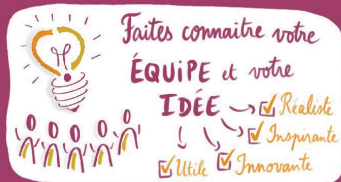 Faites connaître votre
ÉQUIPE et votre
IDÉE Réaliste
Inspirante
Utile Innovante